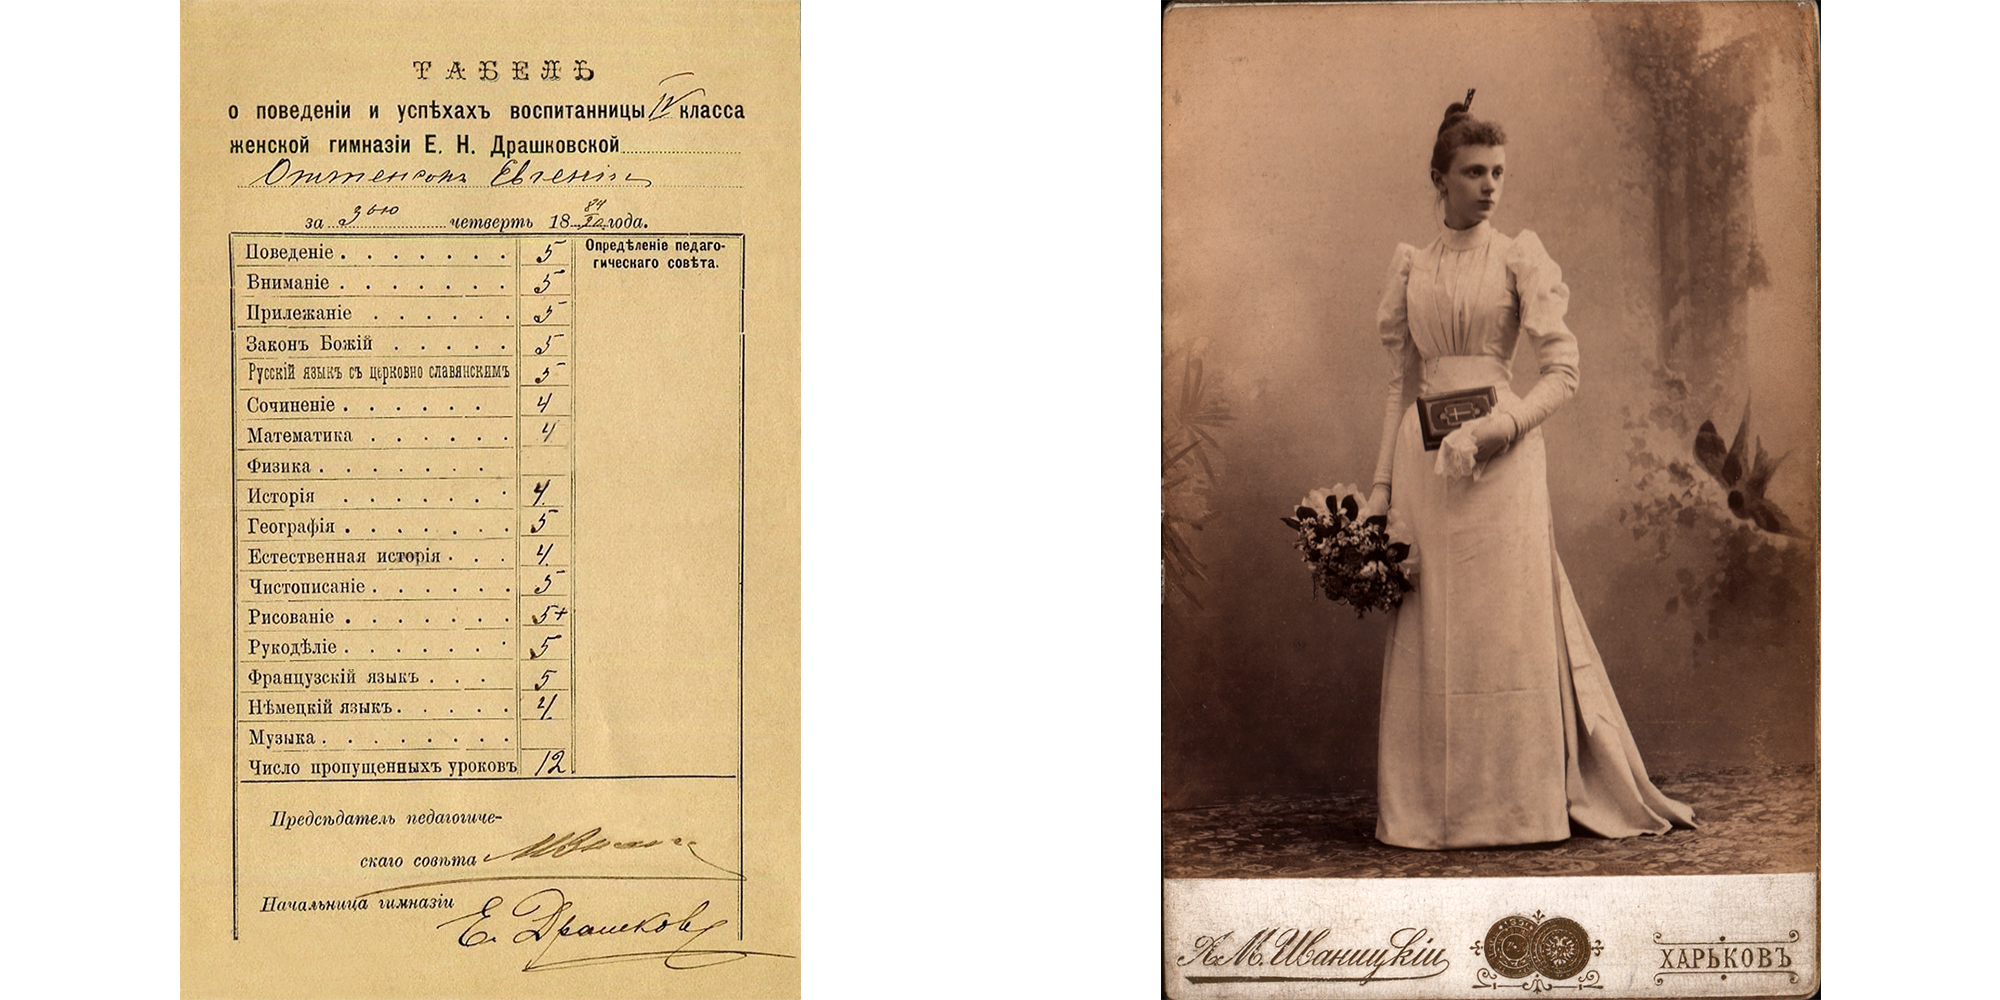 ТАБЕЛЬ
о поведеніи и успѣхахъ воспитанницы IV класса
женской гимназіи Е. Н. Драшковской
Оттенсонъ Евгеніи
за 3ью четверть 18 84 года.
Опредѣленіе педаго-
гическаго совѣта.
Поведеніе 5
Вниманіе 5
Прилежаніе 5
Законъ Божій 5
Русскій языкъ съ церковно славянскимъ 5
Сочиненіе 4
Математика 4
Физика
Исторія 4
Географія 5
Естественная исторія 4
Чистописаніе 5
Рисованіе 5+
Рукодѣліе 5
Французскій языкъ 5
Нѣмецкій языкъ 4
Музыка
Число пропущенныхъ уроковъ 12
Предсѣдатель педагогиче-
скаго совѣта
Начальница гимназіи
Е. Драшковс
А. М. Иваницкій
ХАРЬКОВЪ